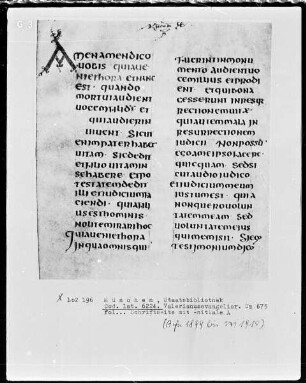 AMENAMENDICO
UOBIS QUIAUE
NIETHORA ETNUNC
EST · QUANDO
MORTUIAUDIENT
UOCEMFILIIDI ET
QUIAUDIERIN
UIUENT SICUT
ENIMPATERHABET
UITAM SICDEDIT
ETFILIOUITAM IN
SEHABERE ETPO
TESTATEMDEDIT
ILLIETIUDICIUMFA
CIENDI · QUIAFILI
USESTHOMINIS
NOLITEMIRARIHOC
QUIAUENIETHORA
INQUAOMNISQUI
FUERINTINMONU
MENTO AUDIENTUO
CEMILLIUS ETPRODI
ENT ETQUIBONA
CESSERUNT INRESUR
RECTIONEMUITAE
QUIAUTEMMALAIN
RESURRECTIONEM
IUDICII NONPOSSU
EGOAMEIPSOFACERE
QUICQUAM SEDSI
CUTAUDIO IUDICO
ETIUDICIUMMEUM
IUSTUMEST · QUIA
NONQUEROUOLUN
TATEMMEAM SED
UOLUNTATEMEIUS
QUIMEMISIT · SIEGO
TESTIMONIUMDICO
X 102 196 München, Staatsbibliothek
Cod. lat. 6224. Valerianusevangeliar. Cim 675
fol... Schriftseite mit Initiale A